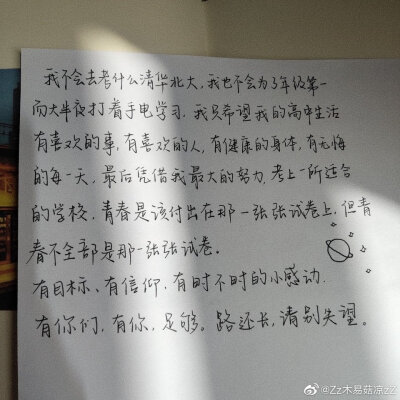 我不会去考什么清华北大,我也不会为了年级第一
而大半夜打着手电学习,我只希望我的高中生活
有喜欢的事,有喜欢的人,有健康的身体,有无悔
的每一天,最后凭借我最大的努力,考上一所适合
的学校,青春是该付出在那一张张试卷上,但青
春不全部是那一张张试卷。
有目标、有信仰,有时不时的小感动.
有你们,有你,足够。路还长,请别失望。
@Zz木易菇凉zZ